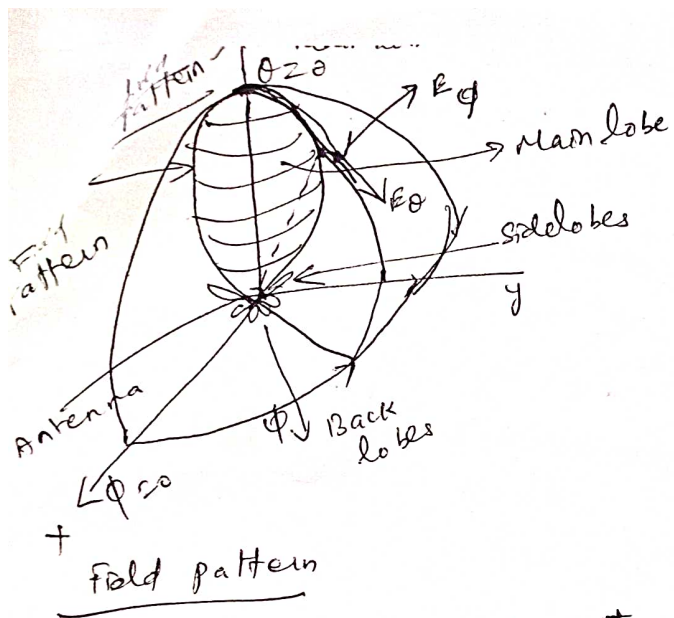 θ=θ
Field
pattern
Eφ
Main lobe
Eθ
Sidelobes
Field
pattern
y
Antenna
φ
Back
lobes
φ=0
Field pattern